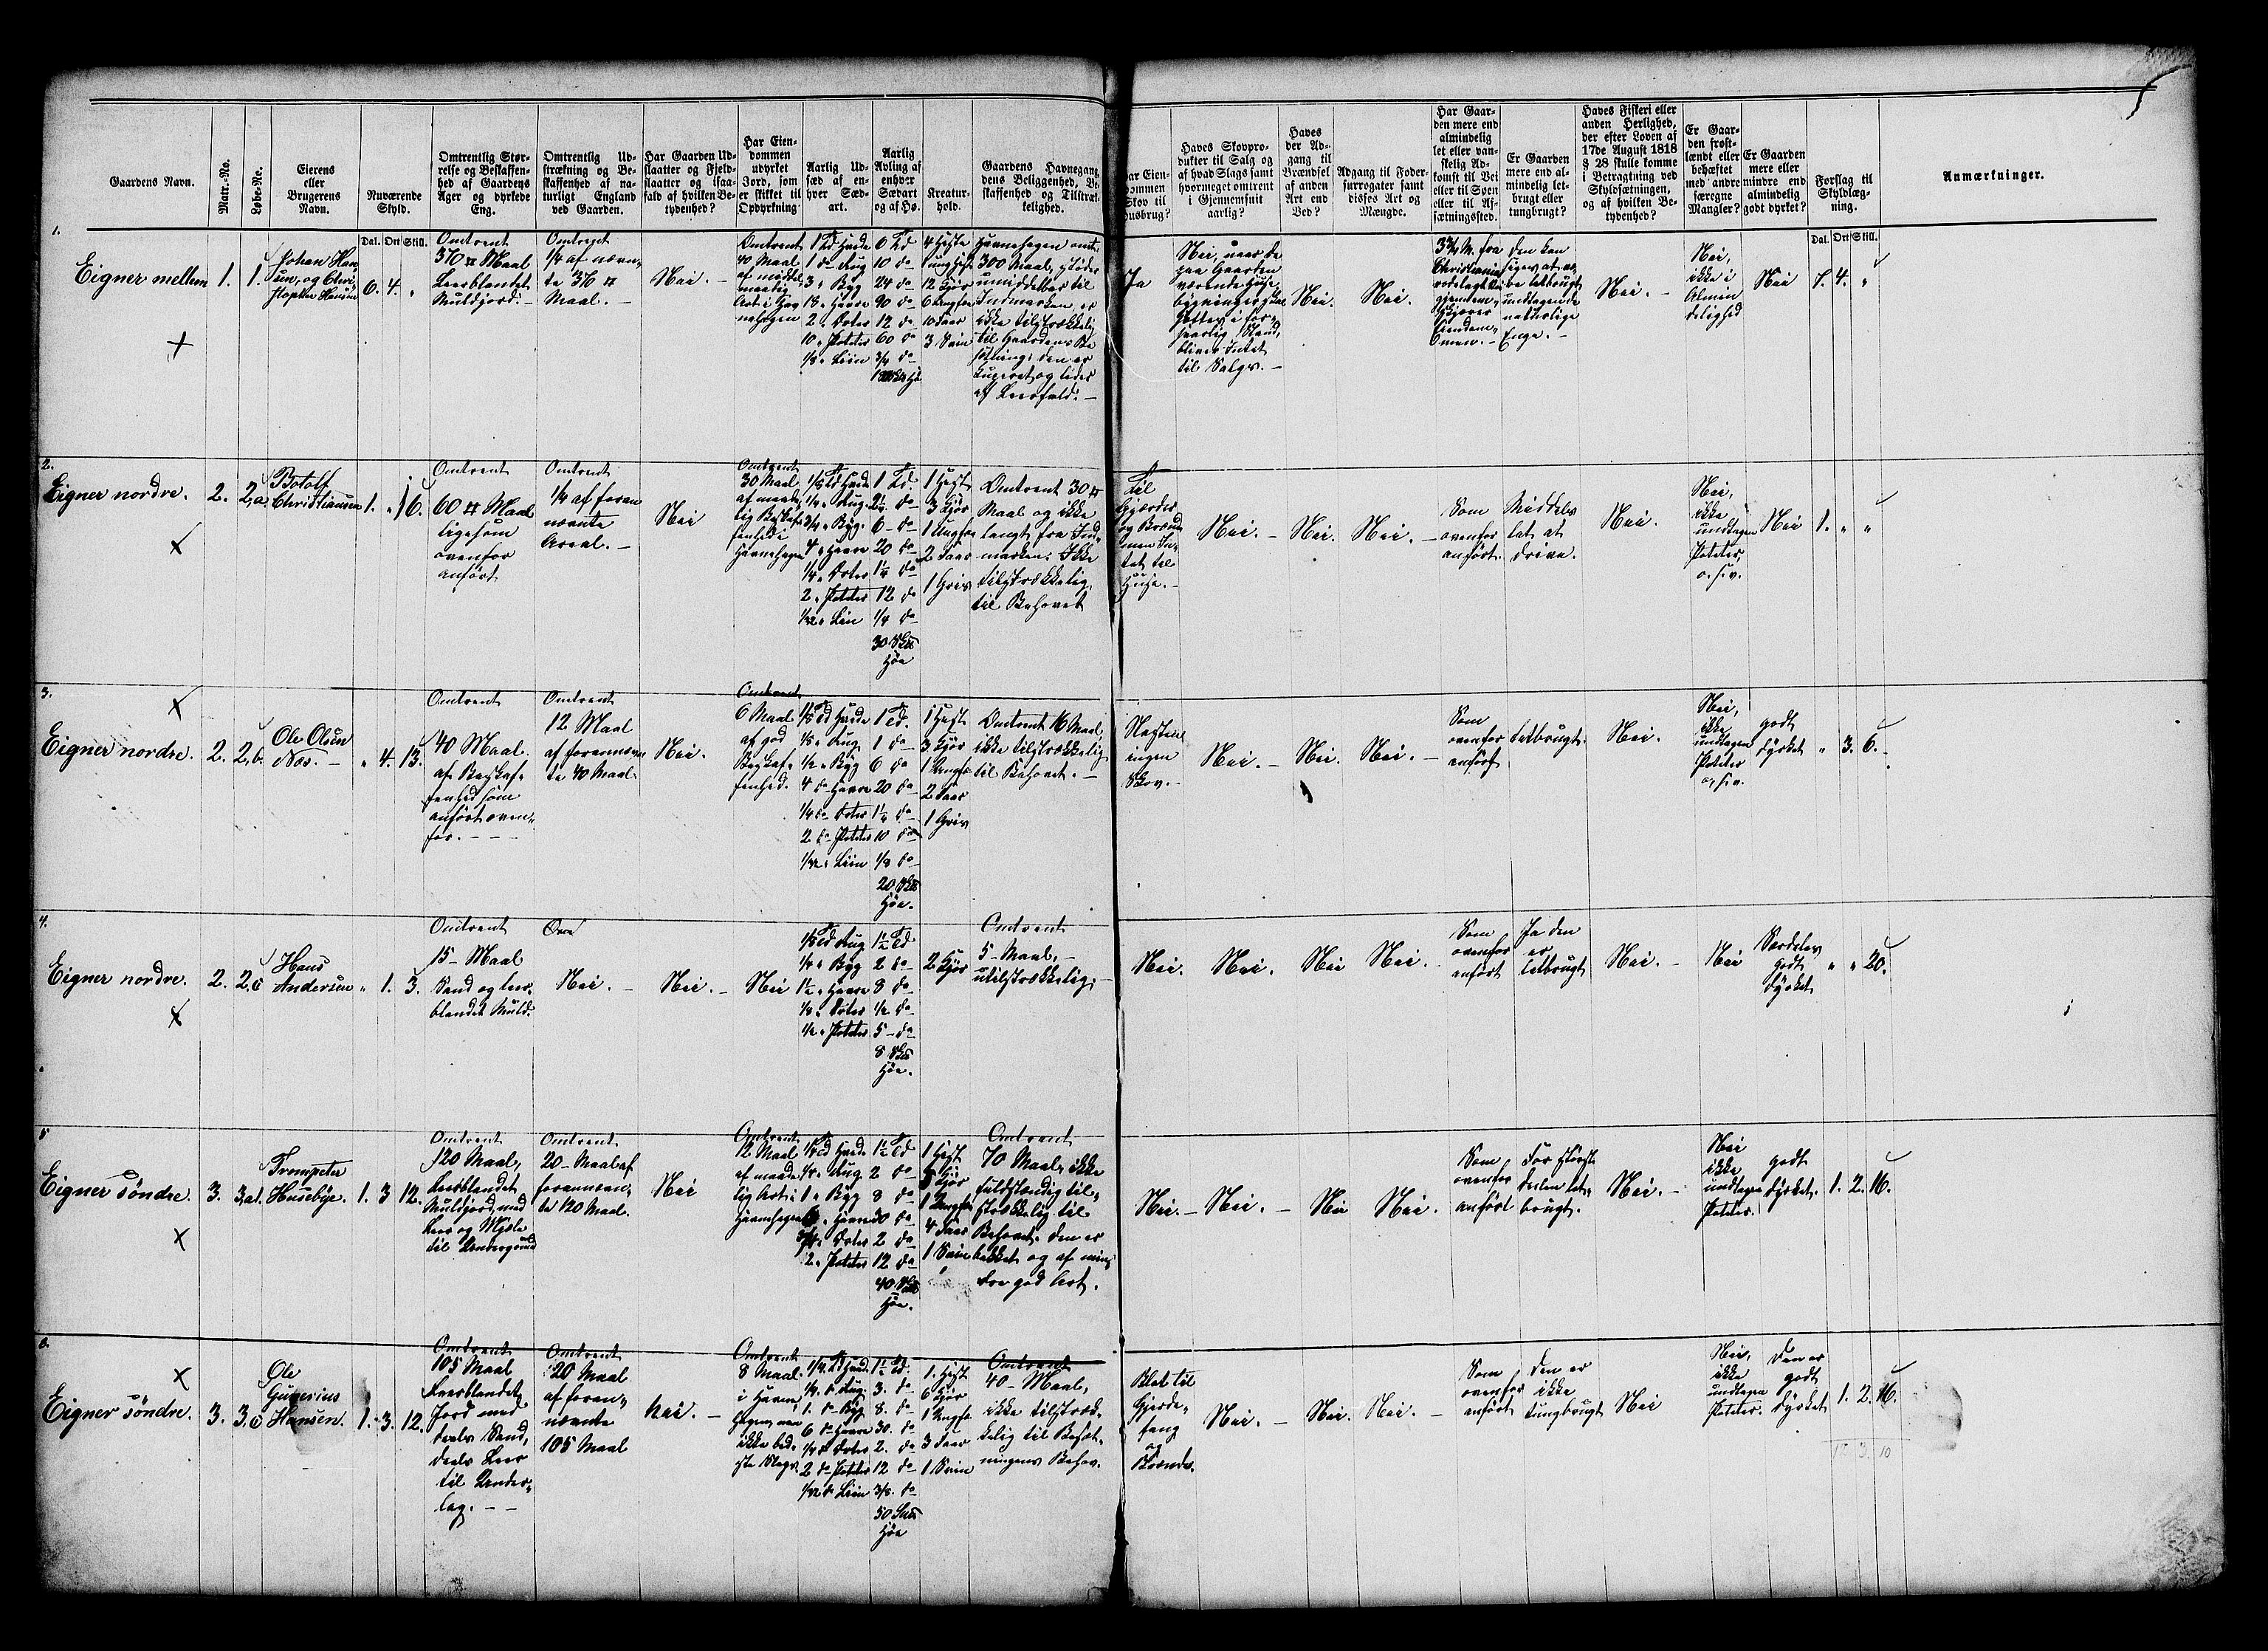 Gaardens Navn.
Matr.-No.
Løbe-No.
Eierens
eller
Brugerens
Navn.
Nuværende
Skyld.
Omtrentlig Stør-
relse og Beskaffen-
hed af Gaardens
Ager og dyrkede
Eng.
Omtrentlig Ud-
strækning og Be-
skaffenhed af na-
turligt England
ved Gaarden.
Har Gaarden Ud-
slaatter og Fjeld-
slaatter og isaa-
fald af hvilken Be-
tydenhed?
Har Eien-
dommen
udyrket
Jord, som
er skikket til
Opdyrkning
Aarlig Ud-
sæd af en-
hver Sæd-
art.
Aarlig
Avling af
enhver
Sædart
og af Hø.
Kreatur-
hold.
Gaardens Havnegang,
dens Beliggenhed, Be-
skaffenhed og Tilstræk-
kelighed.
Har Eien-
dommen
Skov til
Husbrug?
Haves Skovpro-
dukter til Salg og
af hvad Slags samt
hvormeget omtrent
i Gjennemsnit
aarlig?
Haves
der Ad-
gang til
Brændsel
af anden
Art end
Ved?
Adgang til Foder-
surrogater samt
disses Art og
Mængde.
Har Gaar-
den mere end
almindelig
let eller van-
skelig Ad-
komst til Vei
eller til Søen
eller til Af-
sætningssted.
Er Gaarden
mere end al-
mindelig let-
brugt eller
tungbrugt?
Haves Fiskeri eller
anden Herlighed,
der efter Loven af
17de August 1818
§ 28 skulle komme
i Betragtning ved
Skyldsætningen,
og af hvilken Be-
tydenhed?
Er Gaar-
den frost-
lændt eller
behæftet
med andre
særegne
Mangler?
Er Gaarden
mere eller
mindre end
almindelig
godt dyrket?
Forslag til
Skyldlæg-
ning.
Anmærkninger.
Dal. Ort Skill.
Dal. Ort Skill.
1.
Eigner mellem
1.
1.
Johan Han
sen, og Chri
stopher Hansen
6. 4. "
Omtrent
370 Maal
Leerblandet
Muldjord. –
Omtrent
1/4 af nævn-
te 370
Maal. –
Nei. –
Omtrent
40 Maal
af middel
maatig
Art i Hav
nehagen
1 Td Hvede
1 do Rug
3 " Byg
18 " Havre
2 " Erter
10 " Poteter
1/8 " Liin
6 Td
10 do
24 do
90 do
12 do
60 do
3/4 do
4 Heste
1 unghest
12 Kjør
6 Ungfæ
10 Faar
3 Sviin
Havnehagen omt.
300 Maal, støder
umiddelbar til
Indmarken, er
ikke tilstrækkelig
til Gaardens Be
sætning; den er
kuperet og lider
af Leerfald. –
Ja
Nei, naar de
paa Gaarden
værende Huse,
bygninger skal
holdes i for-
svarlig Stand,
bliver Intet
til Salgs. –
Nei.
Nei.
3 3/4 M. fra
Christiania
rodelagt Vei
gjennem-
skjærer
Eiendom-
men. –
Den kan
siges at væ-
re letbrugt
undtagende
naturlige
Enge. –
Nei. –
Nei,
ikke i
Almin
delighed
Nei
7. 4. "
2.
Eigner nordre.
2.
2,a.
Botolf
Christiansen
1. " 16.
Omtrent
60 Maal
ligesom
ovenfor
anført
Omtrent
1/4 af foran
nævnte
Areal. –
Nei
Omtrent
30 Maal
af maade-
lig Beskaf-
fenhed i
Havnehagen
1/8 Td Hvede
1/4 " Rug
3/4 " Byg
4 " Havre
1/4 " Erter
2 " Poteter
1/32 " Liin
1 Td
2 1/2 do
6 – do
20 do
1 1/4 do
12 do
1/4 do
30 Skd
Høe
1 Hest
3 Kjør
1 Ungfæ
2 Faar
1 Griis
Omtrent 30
Maal og ikke
langt fra Ind-
marken; Ikke
tilstrækkelig
til Behovet
Til
Gjærder
og Brænde
men In-
tet til
Huse. –
Nei. –
Nei.
Nei. –
Som
ovenfor
anført.
Middels
let at
drive.
Nei.
Nei,
ikke
undtagen
Poteter,
o. s. v.
Nei
1. " "
3.
Eigner nordre.
2.
2,b.
Ole Olsen
Næs. –
" 4. 13.
Omtrent
40 Maal
af Beskaf-
fenhed som
anført oven-
for. – – –
Omtrent
12 Maal
af forannævn
te 40 Maal.
Nei.
Omtrent
6 Maal
af god
Beskaf-
fenhed.
1/8 Td Hvede
1/8 " Rug
1/2 " Byg
4 do Havre
1/4 do Erter
2 do Poteter
1/32 " Liin
1 Td.
1 do
6 do
20 do
1 1/4 do
10 do
1/8 do
20 Skd
Høe.
1 Hest
3 Kjør
1 Ungfæ
2 Faar
1 Griis
Omtrent 16 Maal,
ikke tilstrækkelig
til Behovet. –
Næsten
ingen
Skov. –
Nei. –
Nei.
Nei. –
Som
ovenfor
anført
letbrugt.
Nei.
Nei,
ikke
undtagen
Poteter
o, s. v.
godt
dyrket
" 3. 6.
4.
Eigner nordre.
2.
2,c
Hans
Andersen
" 1. 3.
Omtrent
15 – Maal
Sand og leer-
blandet Muld.
Nei. –
Nei. –
Nei
1/8 Td Rug
1/4 " Byg
1 1/2 " Havre
1/8 " Erter
1/2 " Poteter
1 1/2 Td
2 do
8 do
1/2 do
5 – do
8 Skd
Høe.
2 Kjør
Omtrent
5 – Maal, –
utilstrækkelig. –
Nei.
Nei.
Nei
Nei. –
Som
ovenfor
anført
Ja den
er
letbrugt
Nei. –
Nei
Særdeles
godt
dyrket
" " 20.
5
Eigner söndre.
3.
3,a1.
Trompeter
Husebye.
1. 3 12.
Omtrent
120 Maal,
Leerblandet
Muldjord, med
Leer og Mjæle
til Undergrund
Omtrent
20 – Maal af
forannævn-
te 120 Maal.
Nei
Omtrent
12 Maal
af maade
lig Art i
Havnehagen
1/4 Td Hvede
1/4 " Rug
1 " Byg
6 " Havre
3/4 " Erter
2 " Poteter
1 1/2 Td
2 do
8 do
30 do
2 do
12 do
40 Skd
Høe.
1 Hest
5 Kjør
1 Ungfæ
4 Faar
1 Sviin
Omtrent
70 Maal, ikke
fuldstændig til-
strækkelig til
Behovet. Den er
bakket og af min-
dre god Art.
Nei. –
Nei. –
Nei
Nei.
Som
ovenfor
anført
For største
Delen let-
brugt.
Nei. –
Nei
ikke
undtagen
Poteter.
godt
dyrket.
1. 2. 16.
6.
Eigner söndre.
3.
3,c
Ole
Gunerius
Hansen.
1. 3. 12.
Omtrent
105 Maal
Leerblandet
Jord med
deels Sand,
deels Leer
til Under-
lag. – –
Omtrent
20 Maal
af foran-
nævnte
105 Maal
Nei. –
Omtrent
8 Maal
i Havne
hagen, men
ikke bed-
ste Slags.
1/4 Td Hvede
1/4 do Rug
1. do Byg
6 do Havre
1/4 do Erter
2 do Poteter
1/32 do Liin
1 1/2 Td.
3. do
8. do
30. do
2. do
12 do
3/8. do
50 Skd
Høe
1. Hest
6 Kjør
1 Ungfæ
3 Faar
1 Sviin
Omtrent
40 – Maal,
ikke tilstræk-
kelig til Besæt-
ningens Behov.
Blot til
Gjærde-
fang
og
Brænde.
Nei. –
Nei.
Nei. –
Som
ovenfor
anført
Den er
ikke
tungbrugt
Nei
Nei,
ikke
undtagen
Poteter.
Den er
godt
dyrket
1. 2. 16.